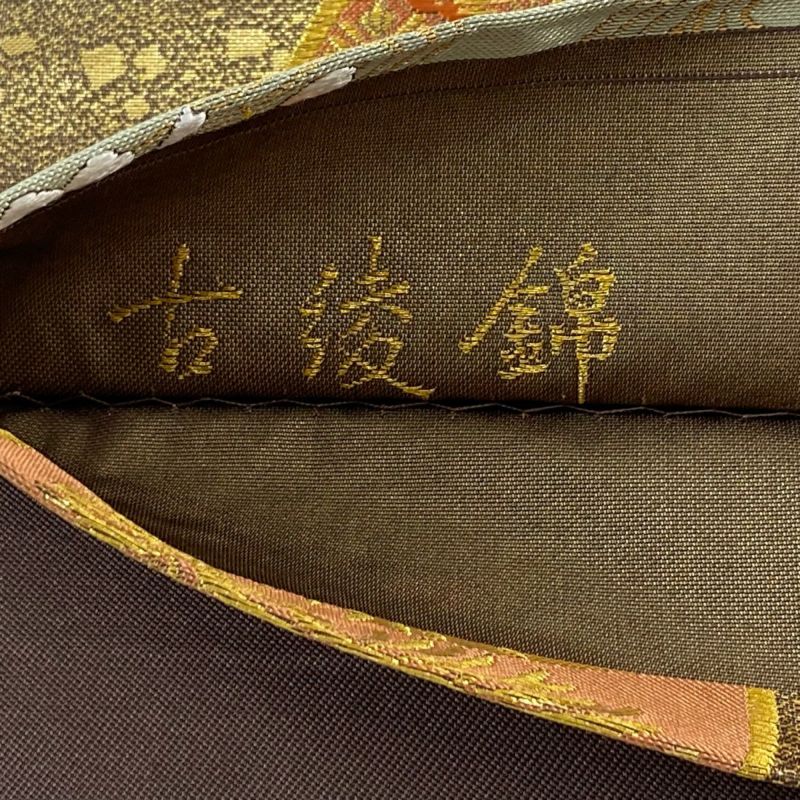 古綾錦